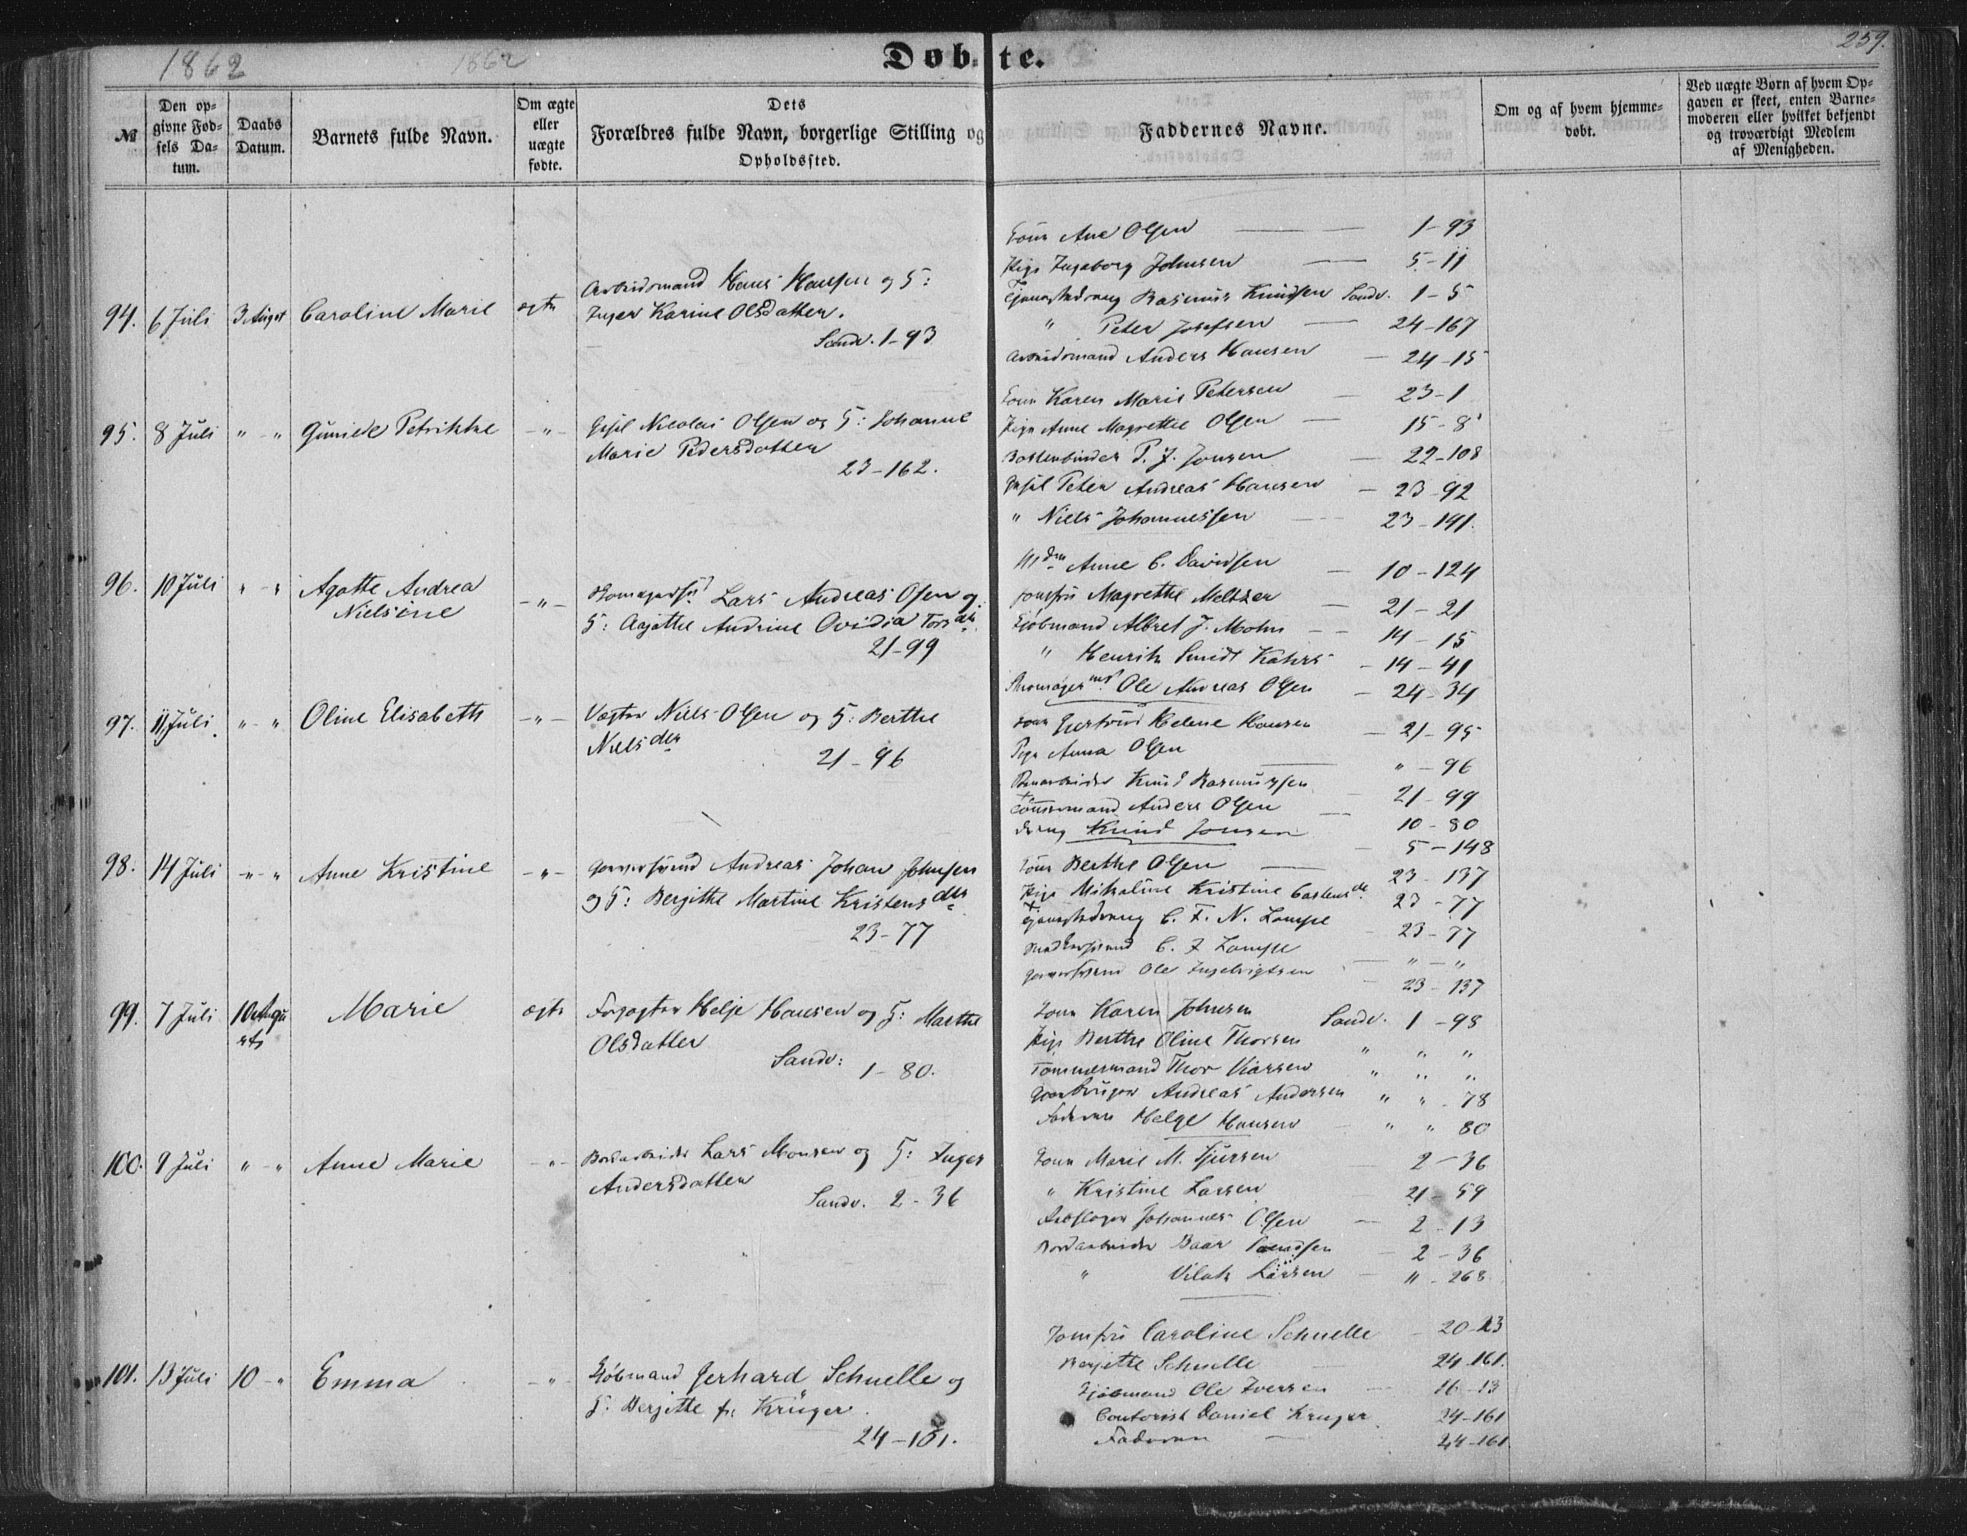 1862
1862
Døbte.
259.
№
Den op-
givne Fød-
sels Da-
tum.
Daabs
Datum.
Barnets fulde Navn.
Om ægte
eller
uægte
fødte.
Dets
Forældres fulde Navn, borgerlige Stilling og
Opholdssted.
Faddernes Navne.
Om og af hvem hjemme-
døbt.
Ved uægte Børn af hvem Op-
gaven er skeet, enten Barne-
moderen eller hvilket bekjendt
og troværdigt Medlem
af Menigheden.
94. 6 Juli 3 August Caroline Marie ægte
Arbeidsmand Hans Hansen og H:
Inger Karine Olsdatter.
Sandv. 1-93
Kone Ane Olsen — 1-93
Pige Ingeborg Johnsen — 5-11
Tjenestedreng Rasmus Knudsen Sandv. 1-5
" Peter Josefsen — 24-167
Arbeidsmand Anders Hansen — 24-15
95. 8 Juli " - " Gunild Petrikke - " -
Nicolai Olsen og H: Johanne
Marie Pedersdatter
23-162.
Kone Karen Marie Petersen — 23-1
Pige Anne Magrethe Olsen — 15-8
P. J. Jonsen — 22-108
Peter Andreas Hansen — 23-92
" Niels Johannessen — 23-141.
96. 10 Juli " - " Agatte Andrea
Nielsine - " -
Lars Andreas Olsen og
H: Agathe Andrine Ovidia Torsdtr
21-99
Anne C. Davidsen — 10-124
Jomfru Magrethe Meltzer — 21-21
Kjøbmand Albret J. Mohn — 14-15
" Henrik Smidt Kahrs — 14-41
Skomagerms. Ole Andreas Olsen — 24-34
97. 11 Juli. " - " Oline Elisabeth - " -
Vægter Niels Olsen og H: Berthe
Nielsdtr
21-96
Kone Gjertrud Helene Hansen — 21-95
Pige Anna Olsen — " - 96
Knud Rasmussen — 21-99
Tømmermand Anders Olsen — 10-80
dreng Knud Jonsen — 5-148
98. 14 Juli - " - " Anne Kristine - " -
Garversvend Andreas Johan Johnsen
og H: Bergithe Martine Kristensdtr
23-77
Kone Berthe Olsen — 23-137
Pige Mikaline Kristine Carlensd. 23-77
Tjenestedreng C. F. N. Lampe — 23-77
C. F. Lampe — " - "
Garversvend Ole Ingebrigtsen — 23-137
99. 7 Juli 10 Augu
sts Marie ægte
Helje Hansen og H: Marthe
Olsdatter
Sandv: 1-80.
Kone Karen Johnsen Sandv. 1-98
Pige Berthe Oline Thorsen " " "
Tømmermand Thor Larsen " " "
Andreas Andersen " " - 78
Faderen Helge Hansen " " 80
100. 9 Juli " - " Anne Marie - " -
Bordarbeider Lars Monsen og H: Inger
Andersdatter
Sandv. 2-36
Kone Marie M. Sjursen 2-36
" Kristine Larsen 21-59
Johannes Olsen — 2-13
Bordarbeider Baar — 2-36
" Larsen — " - 268
101. 13 Juli 10 - " Emma - " -
Kjøbmand Gerhard Schnelle og
H: Bergitte f. Krüger.
24-161.
Jomfru Caroline Schnelle — 20-23
Bergitte Schnelle 24-161.
Kjøbmand Ole Iversen — 16-13
Contorist Daniel Kruger 24-161
Faderen — 24-161